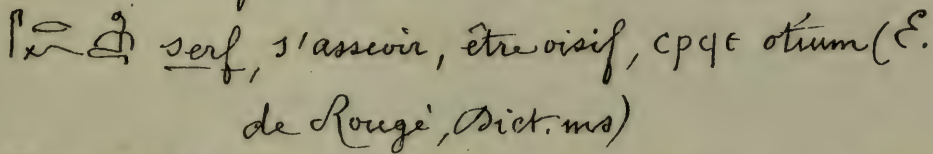 𓋴𓂋𓆑 serf, s'asseoir, être oisif, ⲥⲣϥⲉ otium (E.
de Rougé, Dict. ms)